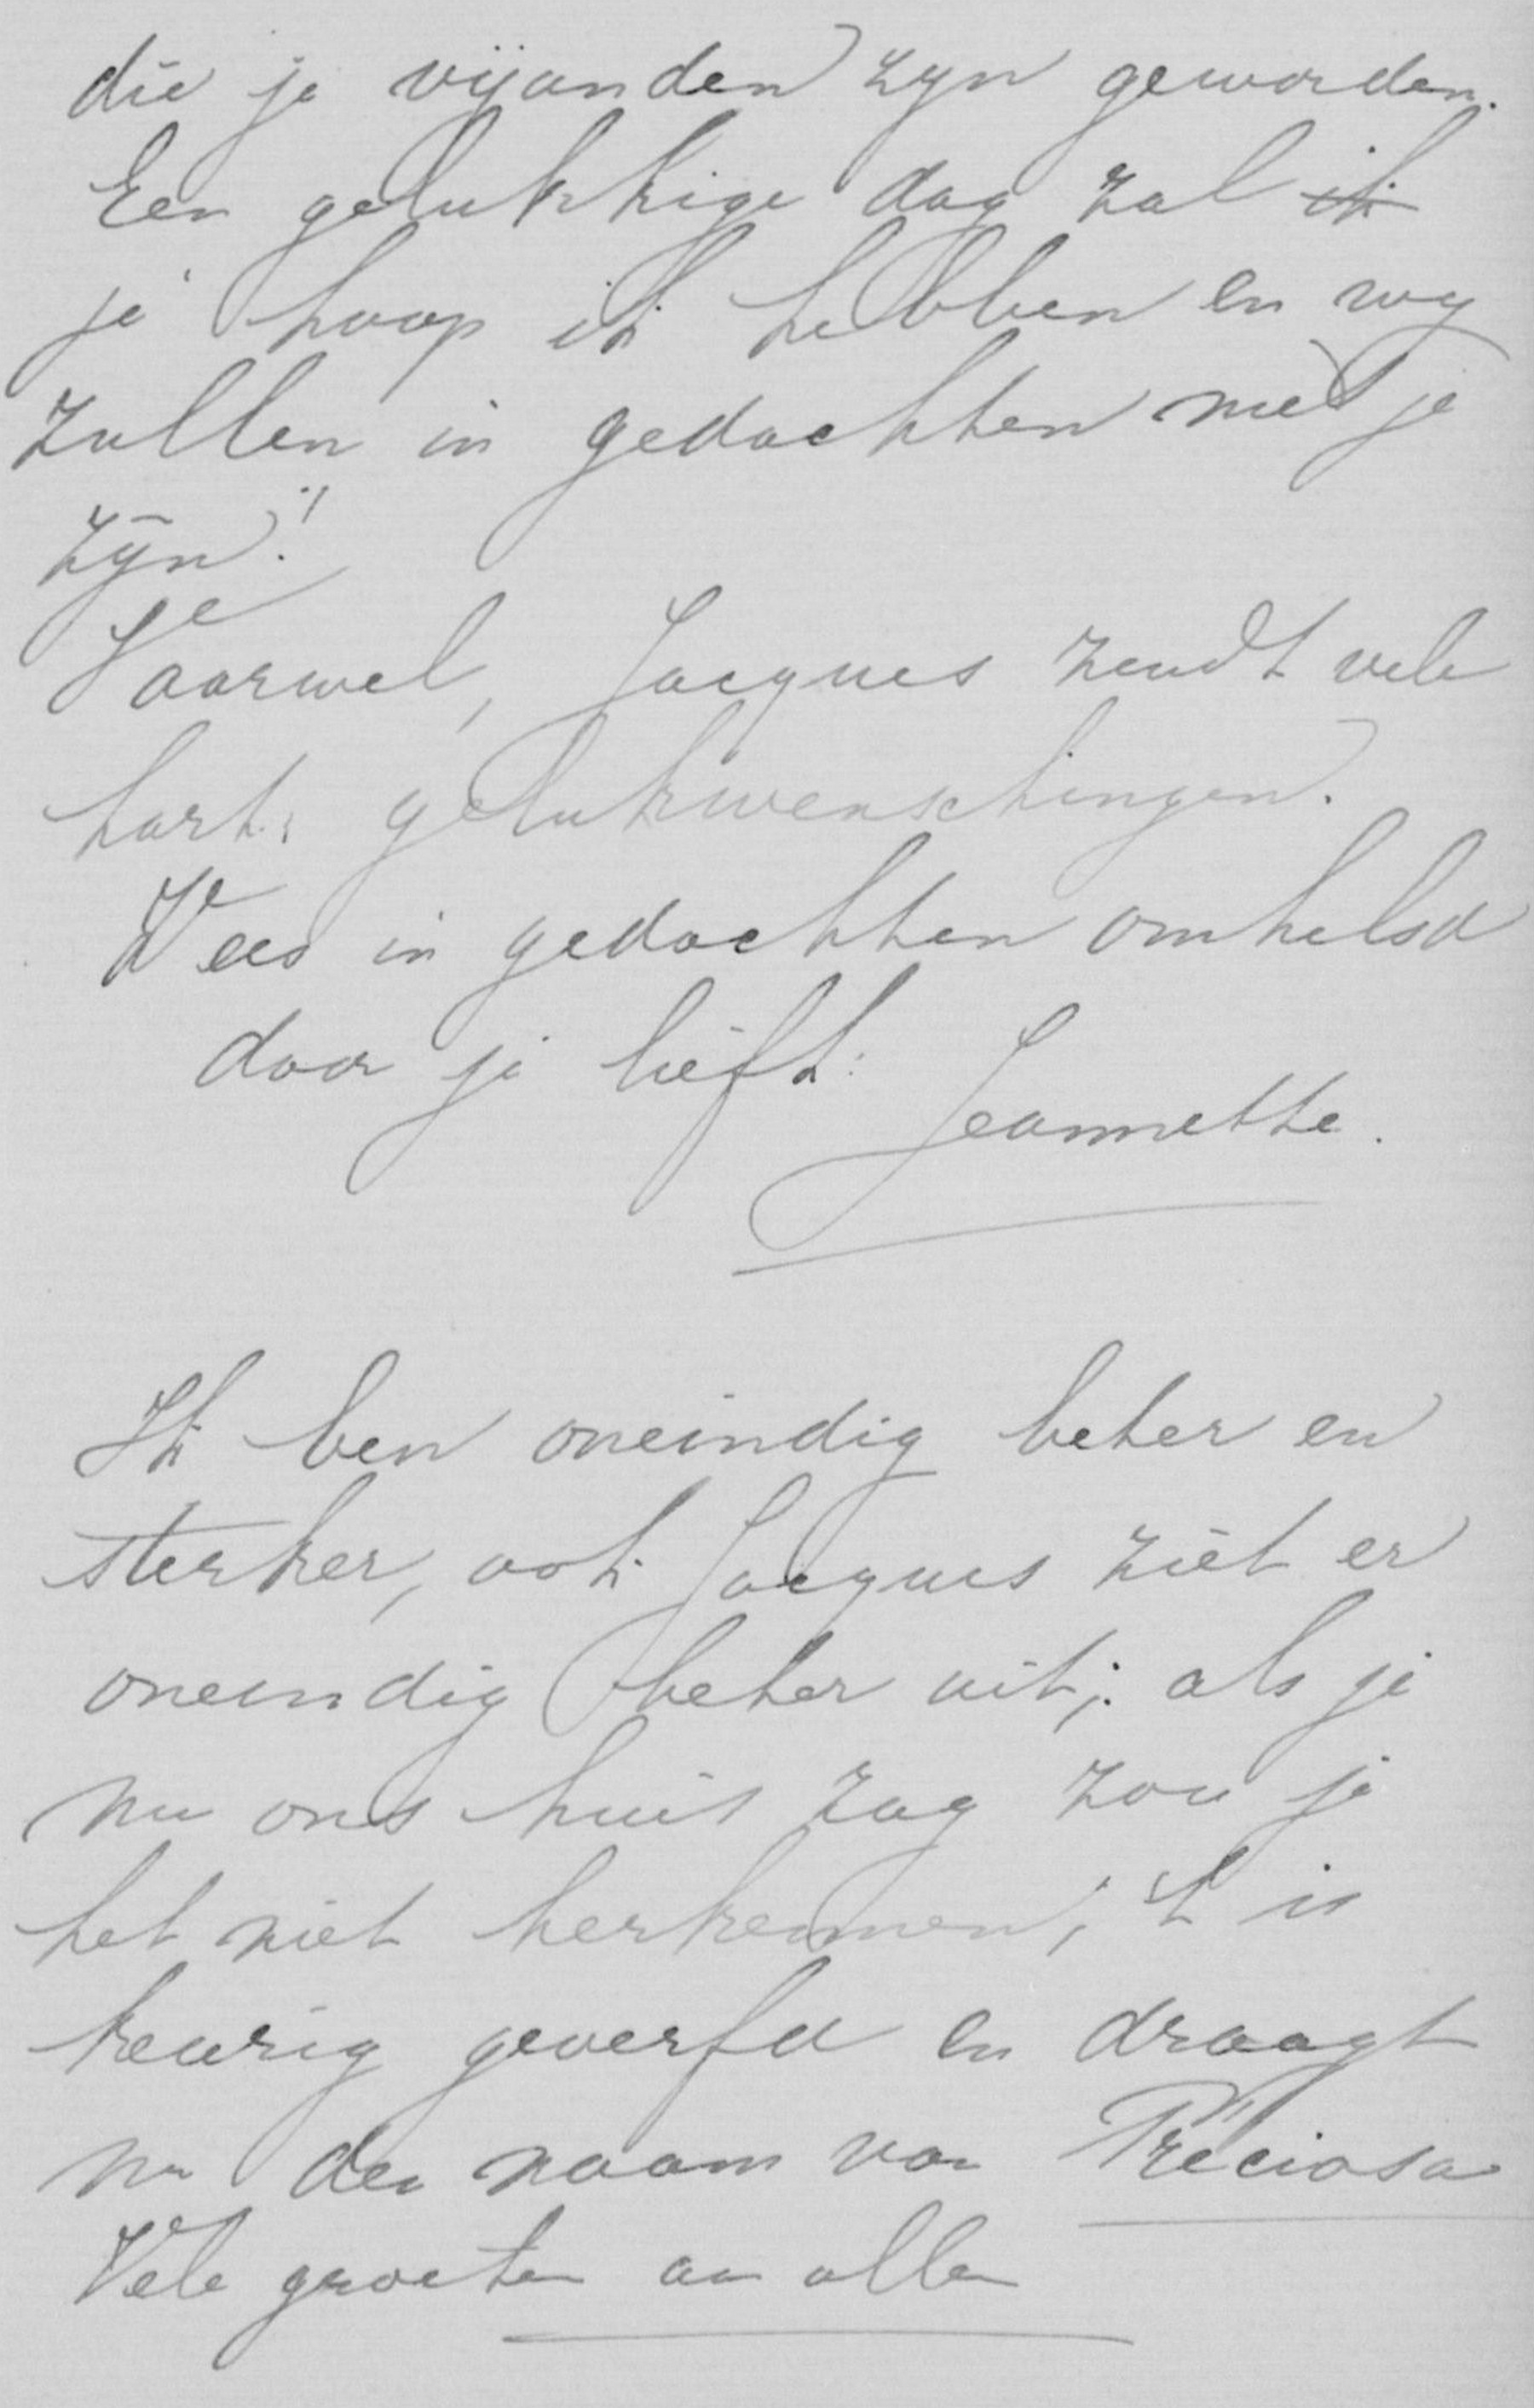 die je vijanden zyn geworden.
Een gelukkige dag zal ik
je hoop ik hebben en wy
zullen in gedachten met je
zijn!
Vaarwel, Jacques zendt vele
hart: gelukwenschingen.
Wees in gedachten omhelsd
door je liefh:
Jeannette.
Ik ben oneindig beter en
sterker, ook Jacques ziet er
oneindig beter uit; als je
nu ons huis zag zou je
het niet herkennen, 't is
keurig geverfd en draagt
nu den naam van Préciosa
Vele groeten aan allen